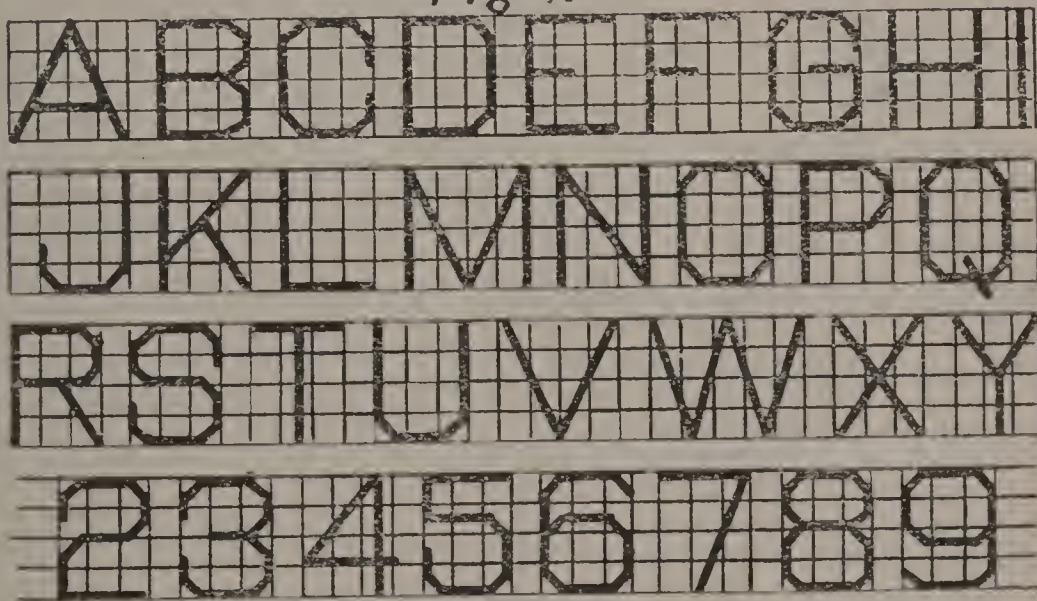 ABCDEFGHI
JKLMNOPQ
RSTUVWXY
23456789